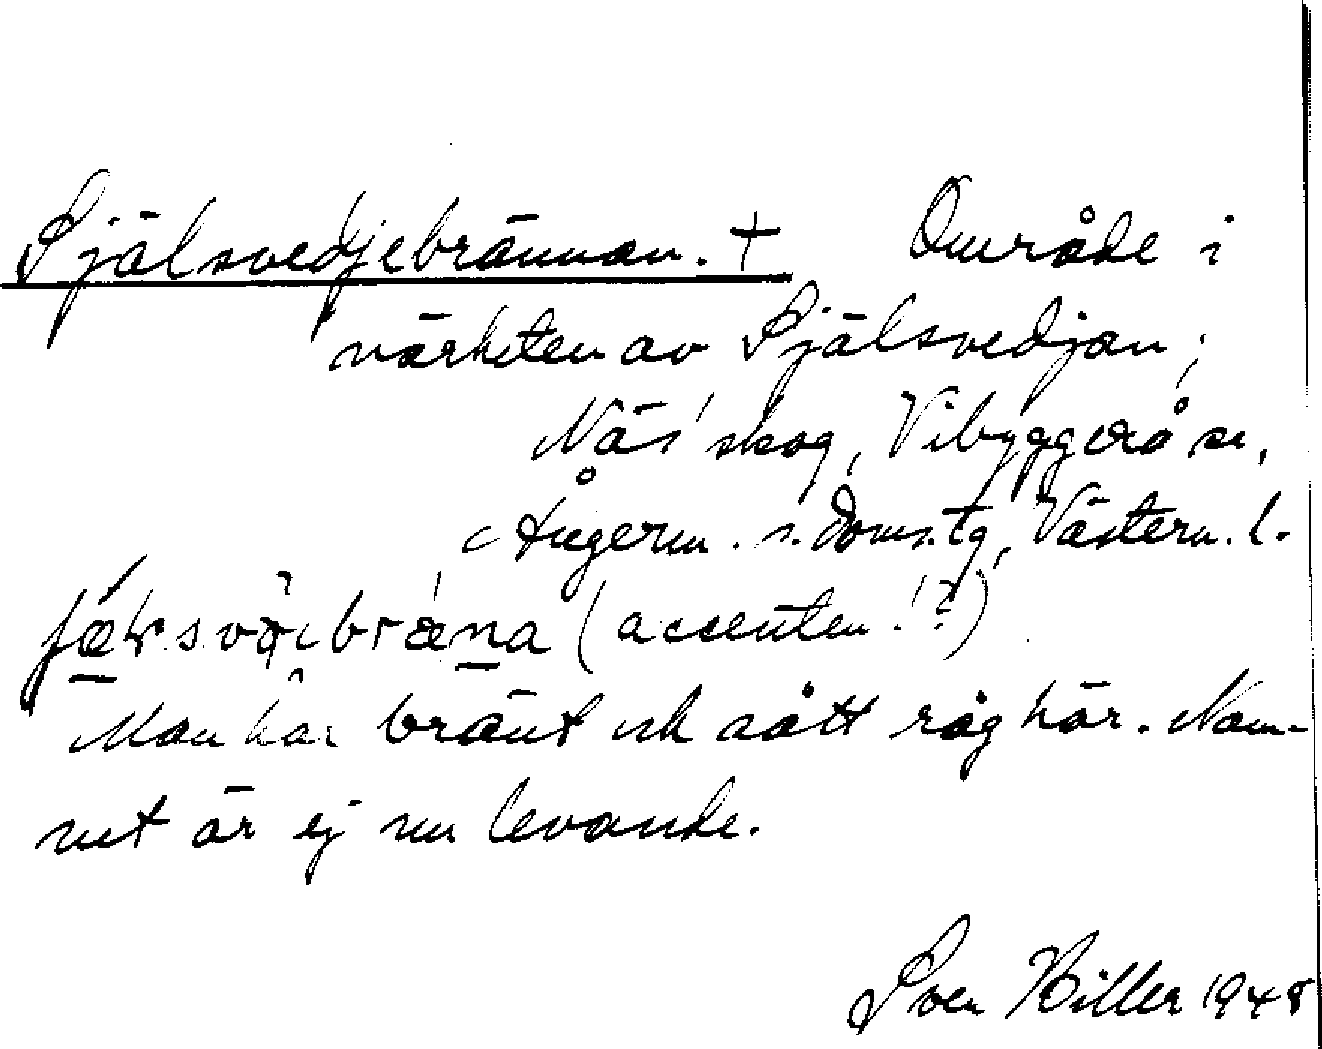 Själsvedjebrännan. + Område i
närheten av Själsvedjan;
Näs' skog, Vibyggerå sn,
Ångerm. s. doms.tg, Västern. l.
(accenten!?)
Man har bränt och sått råg här. Nam-
net är ej nu levande.
Sven Hiller 1948